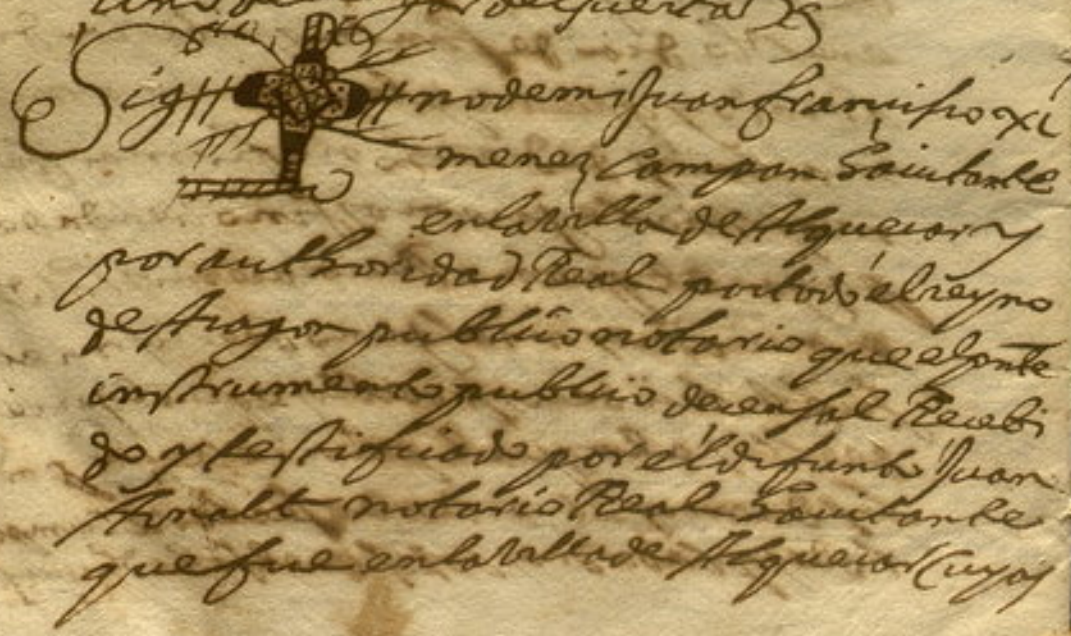 Sig no de mi Juan francisco xi
menez Campan havitante
en la villa de Alquezar y
por authoridad Real por todo el reyno
de Aragon publico notario que el pnte
instrumento publico de censal Recebi
do y testificado por el difunto Juan
notario Real havitante
que fue en la villa de Alquezar cuyas